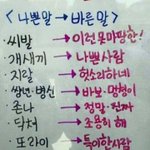 <나쁜말 → 바른말>
· 씨발 → 이런못마땅한!
· 개새끼 → 나쁜사람
· 지랄 → 헛소리하네
· 쌍년 병신 → 바보·멍청이
· 존나 → 정말·진짜
· 닥쳐 → 조용히 해
· 또라이 → 특이한사람